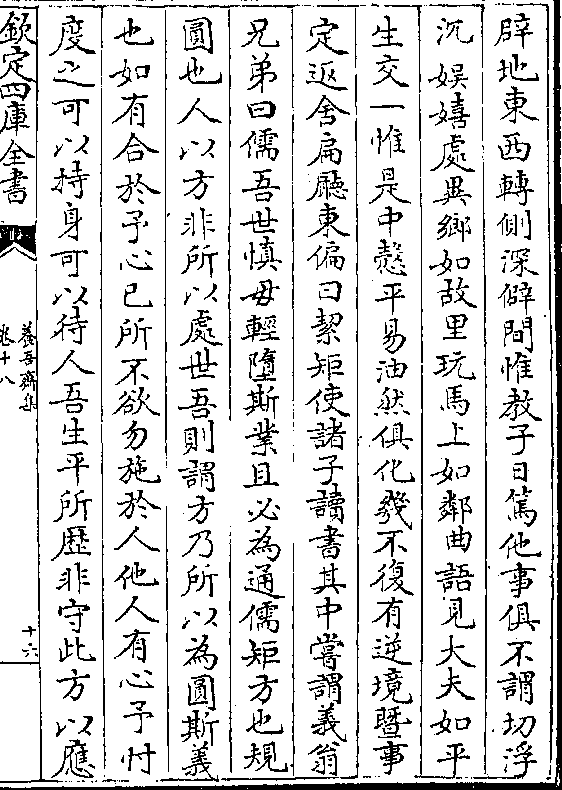 辟地東西轉側深僻間惟教子日篤他事俱不謂切浮
沉娯嬉處異鄉如故里玩馬上如鄰曲語見大夫如平
生交一惟是中慤平易油然俱化幾不復有逆境暨事
定返舍扁廳東偏曰絜矩使諸子讀書其中嘗謂義翁
兄弟曰儒吾世慎毋輕墮斯業且必為通儒矩方也規
圓也人以方非所以處世吾則謂方乃所以為圓斯義
也如有合於予心已所不欲勿施於人他人有心予忖
度之可以持身可以待人吾生平所歴非守此方以應
欽定四庫全書
養吾齋集
卷十八
十六